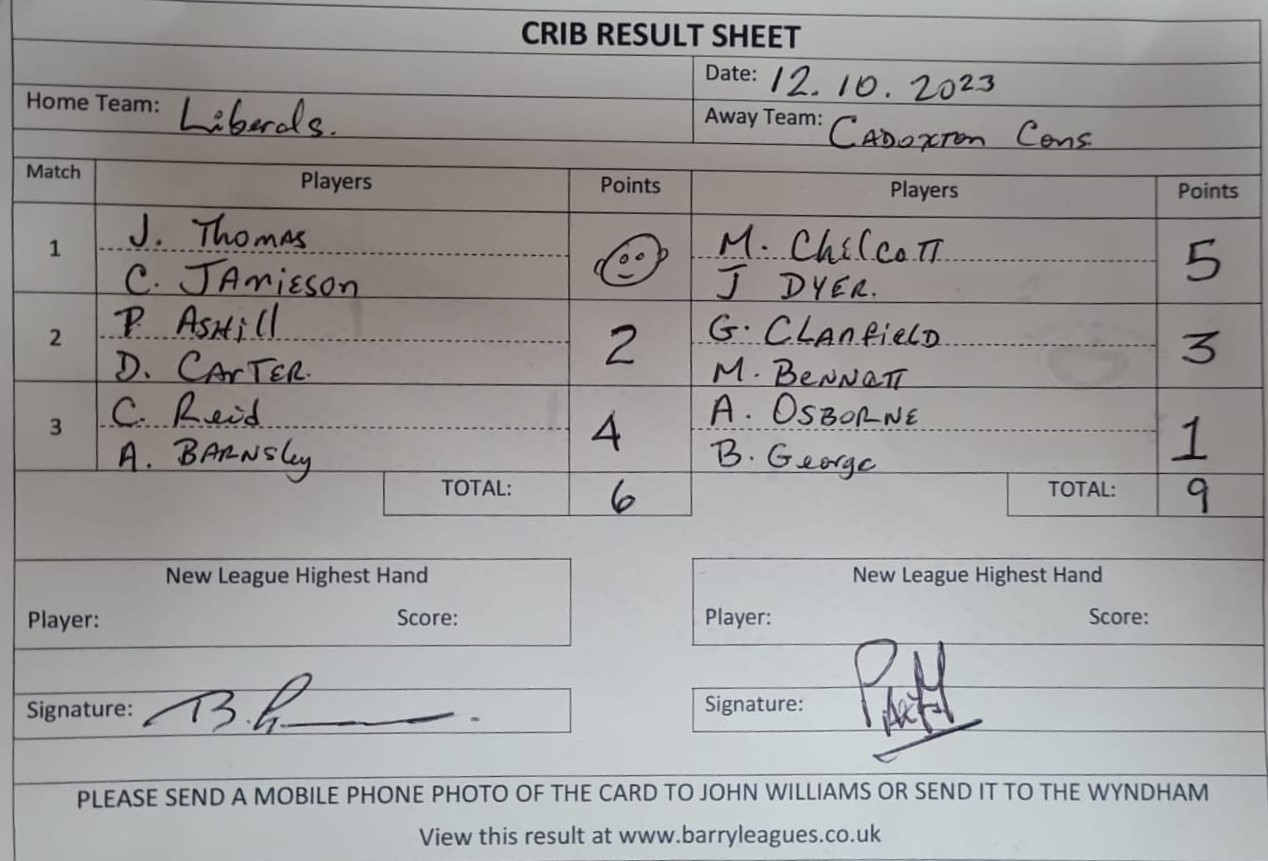 CRIB RESULT SHEET
Date: 12.10.2023
Home Team: Liberals.
Away Team: CADOXTON Cons
Match Players Points Players Points
1 J. THOMAS M. CHILCOTT 5
C. JAMIESON J DYER.
2 P. ASHill 2 G. CLANFIELD 3
D. CARTER. M. BENNATT
3 C. Reid 4 A. OSBORNE 1
A. BARNSley B. George
TOTAL: 6 TOTAL: 9
New League Highest Hand New League Highest Hand
Player: Score: Player: Score:
Signature: Signature:
PLEASE SEND A MOBILE PHONE PHOTO OF THE CARD TO JOHN WILLIAMS OR SEND IT TO THE WYNDHAM
View this result at www.barryleagues.co.uk